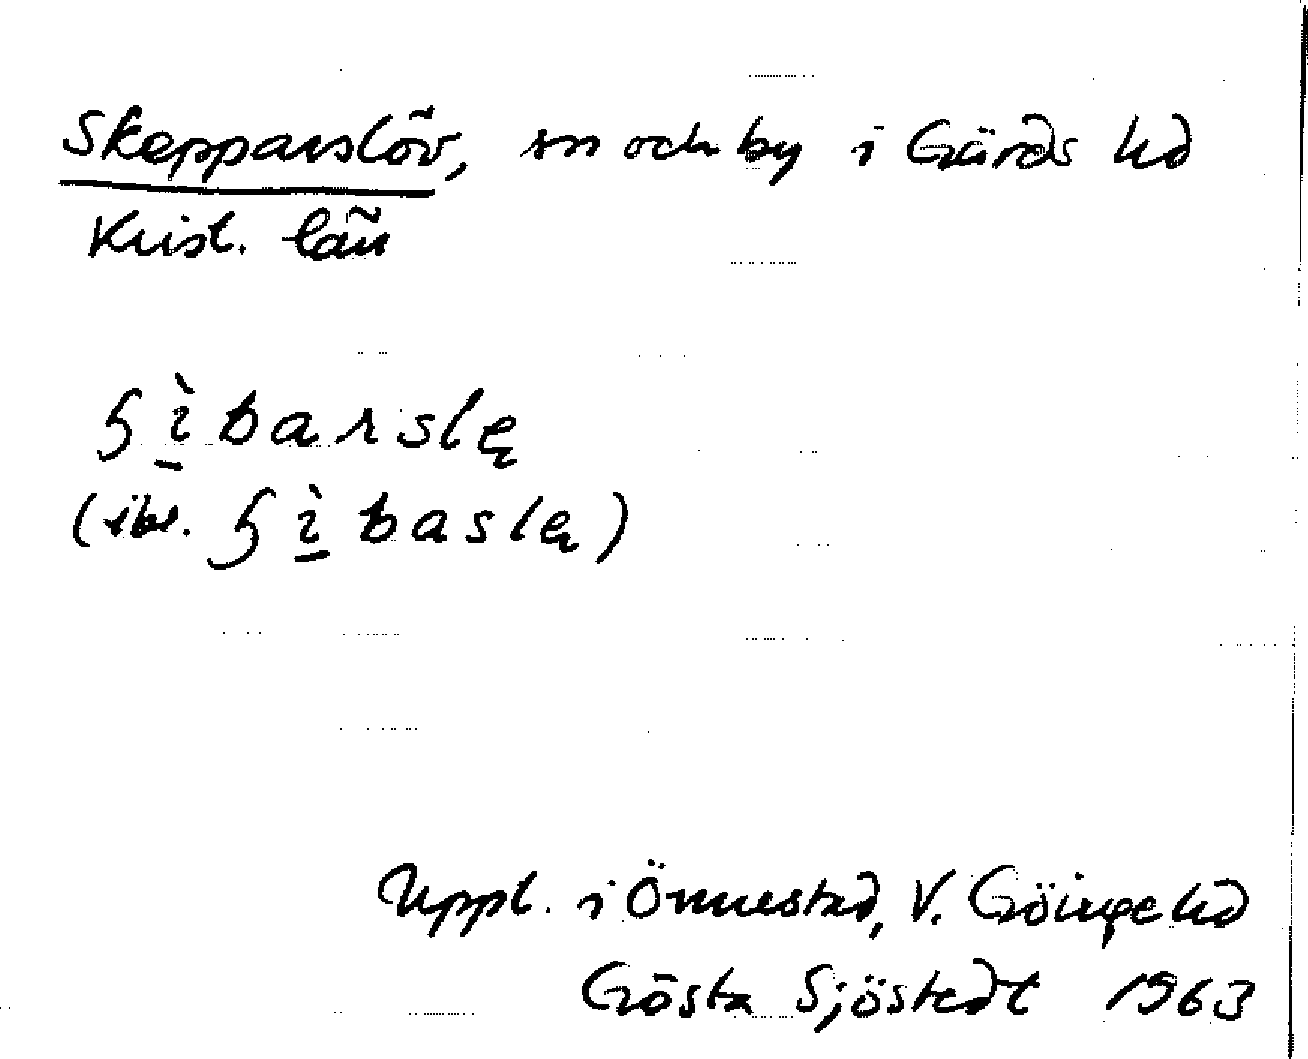 Skepparslöv, sn och by i Gärds hd
Krist. län
ʂì̠barslę
(ibl. ʂì̠baslę)
Uppl. i Önnestad, V. Göinge hd
Gösta Sjöstedt 1963